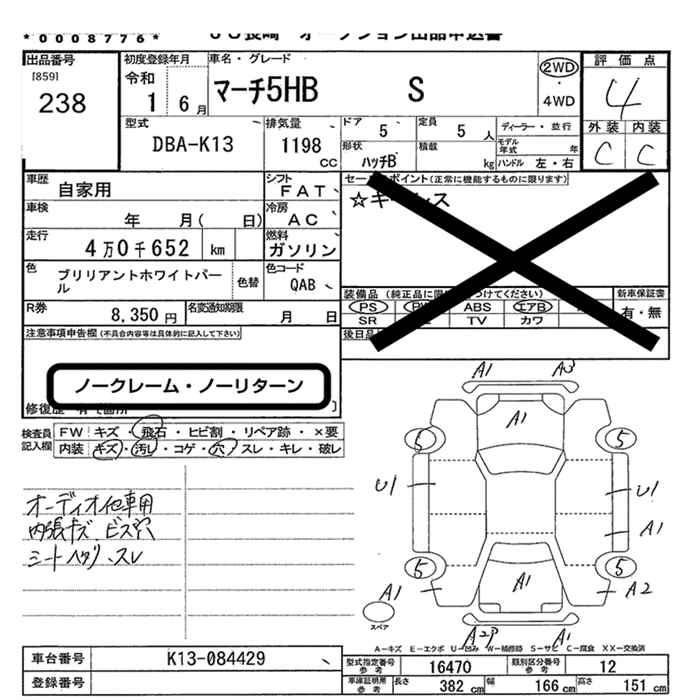 *0008776*
出品番号
[859]
238
初度登録年月
令和
1 6月
車名・グレード
マーチ5HB S
2WD
・
4WD
評価点
4
外装 内装
C C
型式
DBA-K13
排気量
1198
CC
ドア
5
定員
5 人
ディーラー・並行
形状
ハッチB
積載
kg
モデル年式
年
ハンドル 左・右
車歴
自家用
シフト
FAT
車検
年 月( 日)
冷房
AC
走行
4万0千652 km
燃料
ガソリン
色
ブリリアントホワイトパール
色替
色コード
QAB
R券
8,350円
名変通知期限
月 日
セールスポイント(正常に機能するものに限ります)
装備品
PS
ABS
エアB
SR
TV
カワ
新車保証書
有・無
後日品
注意事項申告欄(不具合内容等は具体的に記入して下さい)
ノークレーム・ノーリターン
検査員記入欄
FW キズ・飛石・ヒビ割・リペア跡・×要
内装 キズ・汚レ・コゲ・穴・スレ・キレ・破レ
オーディオ他車用
内張キズ、ビス穴
シートヘタリ、スレ
A1 A3
A1
5 5
U1 U1
A1
5 5
A1 A1 A2
スペア
A2 A1
A-キズ E-エクボ U-凹み W-補修跡 S-サビ C-腐食 XX-交換済
車台番号
K13-084429
登録番号
型式指定番号
参考
16470
類別区分番号
参考
12
車庫証明用
参考
長さ
382 cm
幅
166 cm
高さ
151 cm